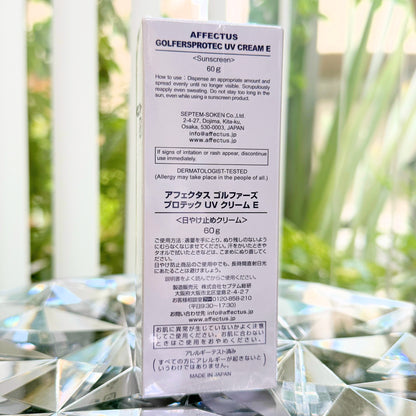 AFFECTUS
GOLFERSPROTEC UV CREAM E
<Sunscreen>
60g
How to use : Dispense an appropriate amount and
spread evenly until no longer visible. Scrupulously
reapply even sweating. Do not stay too long in the
sun, even while using a sunscreen product.
SEPTEM-SOKEN Co.,Ltd.
2-4-27, Dojima, Kita-ku,
Osaka, 530-0003, JAPAN
info@affectus.jp
www.affectus.jp
If signs of irritation or rash appear, discontinue
use immediately.
DERMATOLOGIST-TESTED
(Allergy may take place in the people of all.)
アフェクタス ゴルファーズ
プロテック UV クリーム E
<日やけ止めクリーム>
60g
ご使用方法：適量を手にとり、ぬり残しのないよう
にむらなくのばしてください。汗をかいたときや
タオルで拭いたときなどは、こまめにぬり直してく
ださい。
日やけ防止商品のご使用中でも、長時間直射日光
にあたることは避けましょう。
説明書をよく読んでからご使用ください。
製造販売元 株式会社セプテム総研
大阪府大阪市北区堂島2-4-27
お客様相談室 0120-858-210
(平日9:30～17:30)
お問い合わせ先 info@affectus.jp
www.affectus.jp
お肌に異常が生じていないかよく注意
してご使用ください。お肌に合わない
ときはご使用をおやめください。
アレルギーテスト済み
(すべての方にアレルギーが起きないと
いうわけではありません。)
MADE IN JAPAN